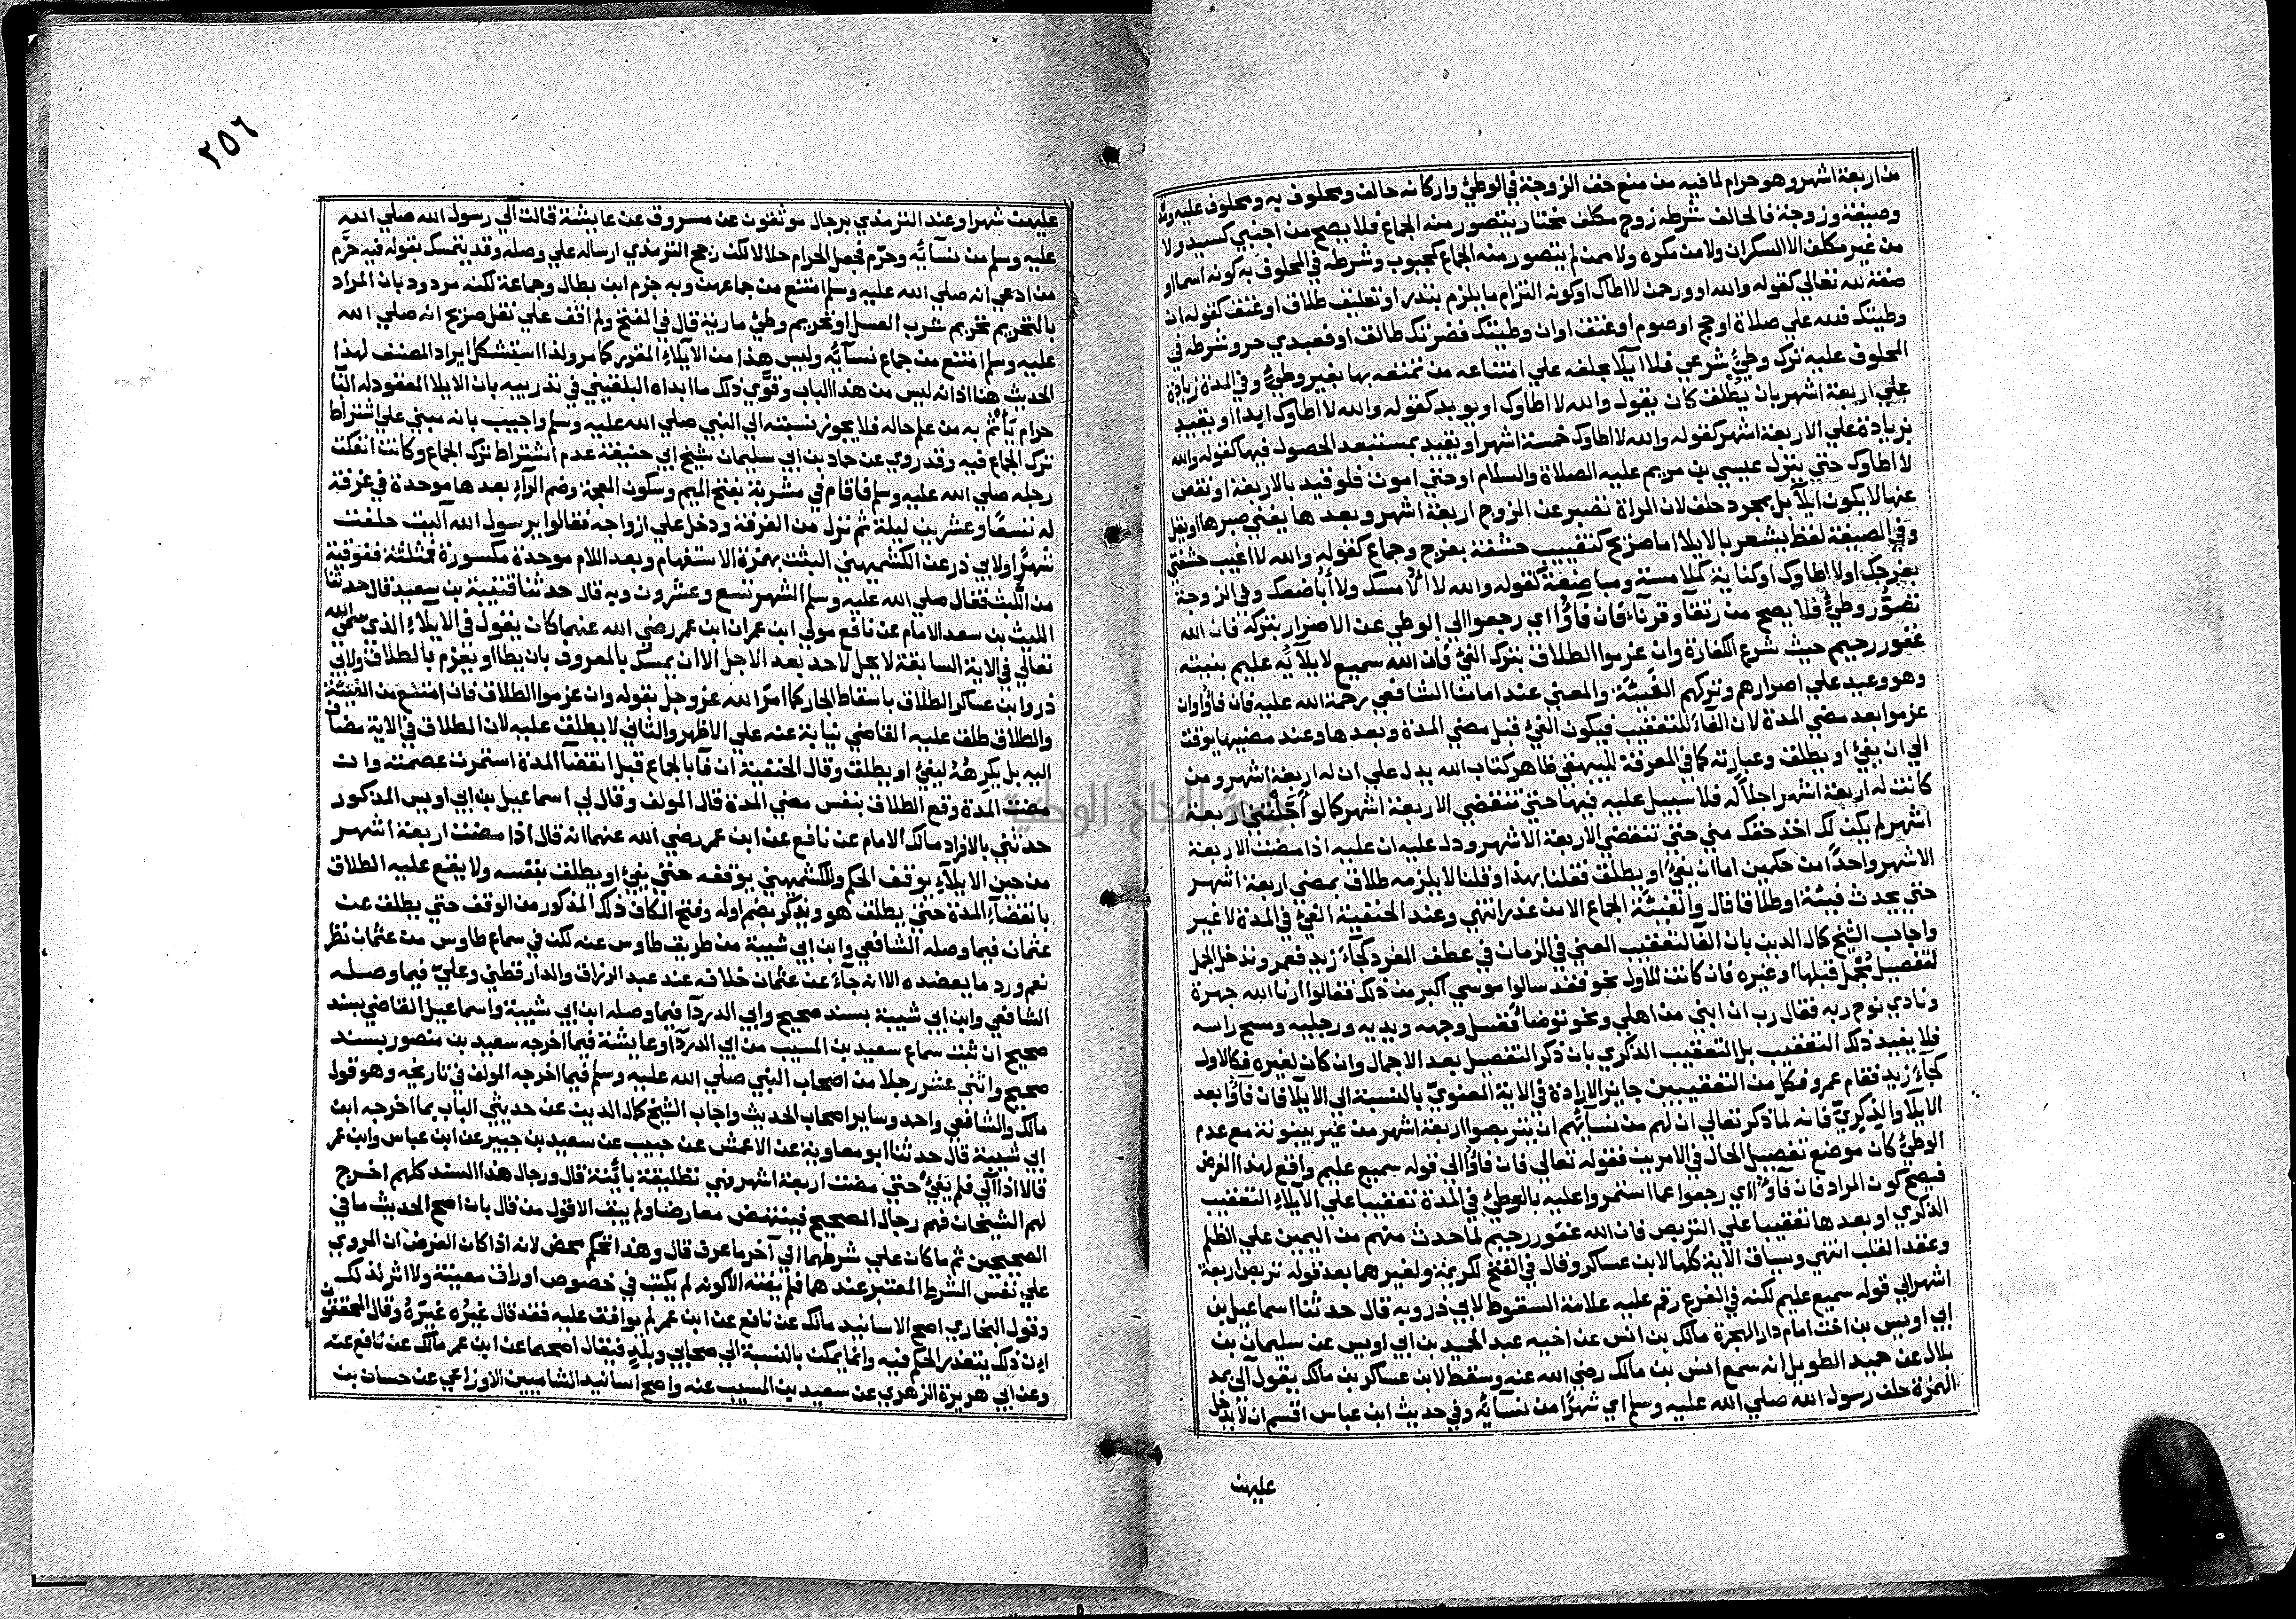 من اربعة اشهر وهو حرام لما فيه من منع حق الزوجة في الوطئ واركانه حالف ومحلوف به ومحلوف عليه ومدة
وصيغة وزوجة فالحالف شرطه زوج مكلف مختار يتصور منه الجماع فلا يصح من اجنبي كسيد ولا
من غير مكلف الا السكران ولا من مكره ولا ممن لم يتصور منه الجماع كمجبوب وشرطه في المحلوف به كونه اسما او
صفة لله تعالي كقوله والله او ورحمن لا اطاك او كونه التزام ما يلزم بنذر او تعليق طلاق او عتق كقوله ان
وطيتك فلله علي صلاة او حج او صوم او عتق او ان وطيتك فضرتك طالق او فعبدي حر وشرطه في
المحلوف عليه ترك وطئ شرعي فلا ايلا بحلفه علي امتناعه من تمتعه بها بغير وطئ وفي المدة زيادة
علي اربعة اشهر بان يطلق كان يقول والله لا اطاوك او يويد كقوله والله لا اطاوك ابدا او يقيد
بزيادة علي الاربعة اشهر كقوله والله لا اطاوك خمسة اشهر او يقيد بمستبعد الحصول فيها كقوله والله
لا اطاوك حتي ينزل عيسي بن مريم عليه الصلاة والسلام او حتي اموت فلو قيد بالاربعة او نقص
عنها لا يكون ايلآ بل مجرد حلف لان المراة تصبر عن الزوج اربعة اشهر وبعد ها يفني صبرها او يقل
وفي الصيغة لفظ يشعر بالايلا اما صريح كتغييب حشفة بفرج وجماع كقوله والله لا اغيب حشفتي
بفرجك اولا اطاوك او كناية كملامسة ومباضعة كقوله والله لا الامسك ولا اباضعك وفي الزوجة
تصور وطئ فلا يصح من رتقآ وقرنآء فان فاؤا اي رجعوا الي الوطي عن الاصرار بتركه فان الله
غفور رحيم حيث شرع الكفارة وان عزموا الطلاق بترك الفئ فان الله سميع لايلآئه عليم بنيته
وهو وعيد علي اصرارهم وتركهم الفيئة والمعني عند امامنا الشافعي رحمة الله عليه فان فاؤا وان
عزموا بعد مضي المدة لان الفآء للتعقيب فيكون الفئ قبل مضي المدة وبعدها وعند مضيها يوقف
الي ان يفئ او يطلق وعبارته كما في المعرفة للبيهقي ظاهر كتاب الله يدل علي ان له اربعة اشهر ومن
كانت له اربعة اشهر اجلا له فلا سبيل عليه فيها حتي تنقضي الاربعة اشهر كما لو اجلتني اربعة
اشهر لم يكن لك اخذ حقك مني حتي تنقضي الاربعة الاشهر ودل عليه ان عليه اذا مضت الاربعة
الاشهر واحدا من حكمين اما ان يفئ او يطلق فقلنا بهذا وقلنا لا يلزمه طلاق بمضي اربعة اشهر
حتي يحدث فيئة او طلاقا قال والفيئة الجماع الا من عذر انتهي وعند الحنفية الفئ في المدة لا غير
واجاب الشيخ كمال الدين بان الفآ لتعقيب المعني في الزمان في عطف المفرد كجآء زيد فعمرو وتدخل الجمل
لتفصيل مجمل قبلها او غيره فان كانت للاول نحو فقد سالوا موسي اكبر من ذلك فقالوا ارنا الله جهرة
ونادي نوح ربه فقال رب ان ابني من اهلي ونحو توضا فغسل وجهه ويديه ورجليه ومسح راسه
فلا يفيد ذلك التعقيب بل التعقيب الذكري بان ذكر التفصيل بعد الاجمال وان كان لغيره فكالاول
كجآء زيد فقام عمرو فكل من التعقيبين جايز الارادة في الاية المعنوي بالنسبة الي الايلآ فان فاؤا بعد
الايلآ والذكري فانه لما ذكر تعالي ان لهم من نسآئهم ان يتربصوا اربعة اشهر من غير بينونة مع عدم
الوطئ كان موضع تفصيل الحال في الامرين فقوله تعالي فان فاؤا الي قوله سميع عليم واقع لهذا الغرض
فيصح كون المراد فان فآوا اي رجعوا عما استمروا عليه بالوطئ في المدة تعقيبا علي الايلاء التعقيب
الذكري او بعدها تعقيبا علي التربص فان الله غفور رحيم لما حدث منهم من اليمين علي الظلم
وعقد القلب انتهي وسياق الاية كلها لابن عساكر وقال في الفتح لكريمة ولغيرهما بعد قوله تربص اربعة
اشهر الي قوله سميع عليم لكنه في الفرع رقم عليه علامة السقوط لابي ذر وبه قال حدثنا اسماعيل بن
ابي اويس بن اخت امام دار الهجرة مالك بن انس عن اخيه عبد الحميد بن ابي اويس عن سليمان بن
بلال عن حميد الطويل انه سمع انس بن مالك رضي الله عنه وسقط لابن عساكر بن مالك يقول آلي بمد
الهمزة حلف رسول الله صلي الله عليه وسلم اي شهرا من نسآئه وفي حديث ابن عباس اقسم ان لا يدخل
عليهن
٢٥٦
عليهن شهرا وعند الترمذي برجال موثقون عن مسروق عن عايشة قالت الي رسول الله صلي الله
عليه وسلم من نسآئه وحرم فجعل الحرام حلالا لكن رجح الترمذي ارساله علي وصله وقد يتمسك بقوله فيه حرم
من ادعي انه صلي الله عليه وسلم امتنع من جماعهن وبه جزم ابن بطال وجماعة لكنه مردود بان المراد
بالتحريم تحريم شرب العسل او تحريم وطئ مارية قال في الفتح ولم اقف علي نقل صريح انه صلي الله
عليه وسلم امتنع من جماع نسآئه وليس هذا من الايلاء المقرر كما مر ولذا استشكل ايراد المصنف لهذا
الحديث هنا اذ انه ليس من هذا الباب وقوي ذلك ما ابداه البلقيني في تدريبه بان الايلا المعقود له البآ
حرام يأثم به من علم حاله فلا يجوز نسبته الي النبي صلي الله عليه وسلم واجيب بانه مبني علي اشتراط
ترك الجماع فيه وقد روي عن حماد بن ابي سليمان شيخ ابي حنيفة عدم اشتراط ترك الجماع وكانت انفكت
رجله صلي الله عليه وسلم فاقام في مشربة بفتح الميم وسكون المعجمة وضم الرآء بعدها موحدة في غرفة
له تسعا وعشرين ليلة ثم نزل من الغرفة ودخل علي ازواجه فقالوا يرسول الله آليت حلفت
شهرا ولابي ذر عن الكشميهني البثت بهمزة الاستفهام وبعد اللام موحدة مكسورة فمثلثة ففوقية
من اللبث فقال صلي الله عليه وسلم الشهر تسع وعشرون وبه قال حدثنا قتيبة بن سعيد قال حدثنا
الليث بن سعد الامام عن نافع مولي ابن عمر ان ابن عمر رضي الله عنهما كان يقول في الايلاء الذي سمي الله
تعالي في الاية السابقة لا يحل لاحد بعد الاجل الا ان يمسك بالمعروف بان يطا او يعزم بالطلاق ولابي
ذر وابن عساكر الطلاق باسقاط الجار كما امر الله عز وجل بقوله وان عزموا الطلاق فان امتنع من الفيئة
والطلاق طلق عليه القاضي نيابة عنه علي الاظهر والثاني لا يطلق عليه لان الطلاق في الاية مضاف
اليه بل يكرهه ليفئ او يطلق وقال الحنفية ان فآ بالجماع قبل انقضآ المدة استمرت عصمته وان
مضت المدة وقع الطلاق بنفس مضي المدة قال المولف وقال لي اسماعيل بن ابي اويس المذكور
حدثني بالافراد مالك الامام عن نافع عن ابن عمر رضي الله عنهما انه قال اذا مضت اربعة اشهر
من حين الايلآء يوقف الحكم وللكشميهني يوقفه حتي يفئ او يطلق بنفسه ولا يقع عليه الطلاق
بانقضآء المدة حتي يطلق هو ويذكر بضم اوله وفتح الكاف ذلك المذكور من الوقف حتي يطلق عن
عثمان فيما وصله الشافعي وابن ابي شيبة من طريق طاوس عنه لكن في سماع طاوس من عثمان نظر
نعم ورد ما يعضده الا انه جآء عن عثمان خلافه عند عبد الرزاق والدارقطني وعلي فيما وصله
الشافعي وابن ابي شيبة بسند صحيح وابي الدردآ فيما وصله ابن ابي شيبة واسماعيل القاضي بسند
صحيح ان ثبت سماع سعيد بن المسيب من ابي الدردآ وعايشة فيما اخرجه سعيد بن منصور بسند
صحيح واثني عشر رجلا من اصحاب النبي صلي الله عليه وسلم فيما اخرجه المولف في تاريخه وهو قول
مالك والشافعي واحد وساير اصحاب الحديث واجاب الشيخ كمال الدين عن حديثي الباب بما اخرجه ابن
ابي شيبة قال حدثنا ابو معاوية عن الاعمش عن حبيب عن سعيد بن جبير عن ابن عباس وابن عمر
قالا اذا آلي فلم يفئ حتي مضت اربعة اشهر فهي تطليقة بائنة قال ورجال هذا السند كلهم اخرج
لهم الشيخان فهم رجال الصحيح فينتهض معارضا ولم يبق الا قول من قال بان اصح الحديث ما في
الصحيحين ثم ما كان علي شرطهما الي آخر ما عرف قال وهذا تحكم محض لانه اذا كان الغرض ان المروي
علي نفس الشرط المعتبر عندهما فلم يفته الا كونه لم يكتب في خصوص اوراق معينة ولا اثر لذلك
وقول البخاري اصح الاسانيد مالك عن نافع عن ابن عمر لم يوافق عليه فقد قال غيره غيره وقال المحققون
ان ذلك يتعذر الحكم فيه وانما يمكن بالنسبة الي صحابي وبلد فيقال اصحها عن ابن عمر مالك عن نافع عنه
وعن ابي هريرة الزهري عن سعيد بن المسيب عنه واصح اسانيد الشاميين الاوزاعي عن حسان بن
جامعة النجاح الوطنية